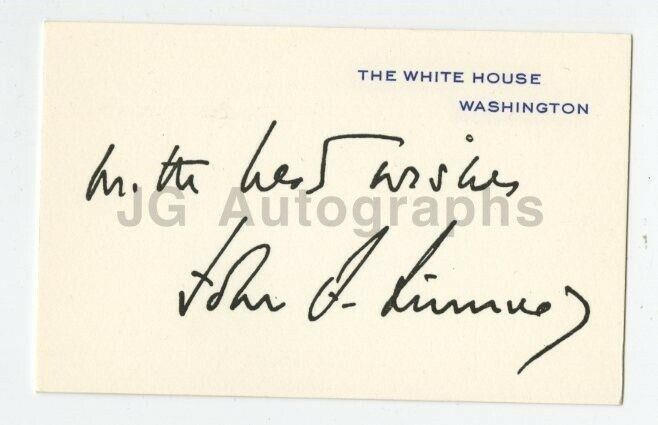 THE WHITE HOUSE
WASHINGTON
With best wishes
JG Autographs
John F. Kennedy